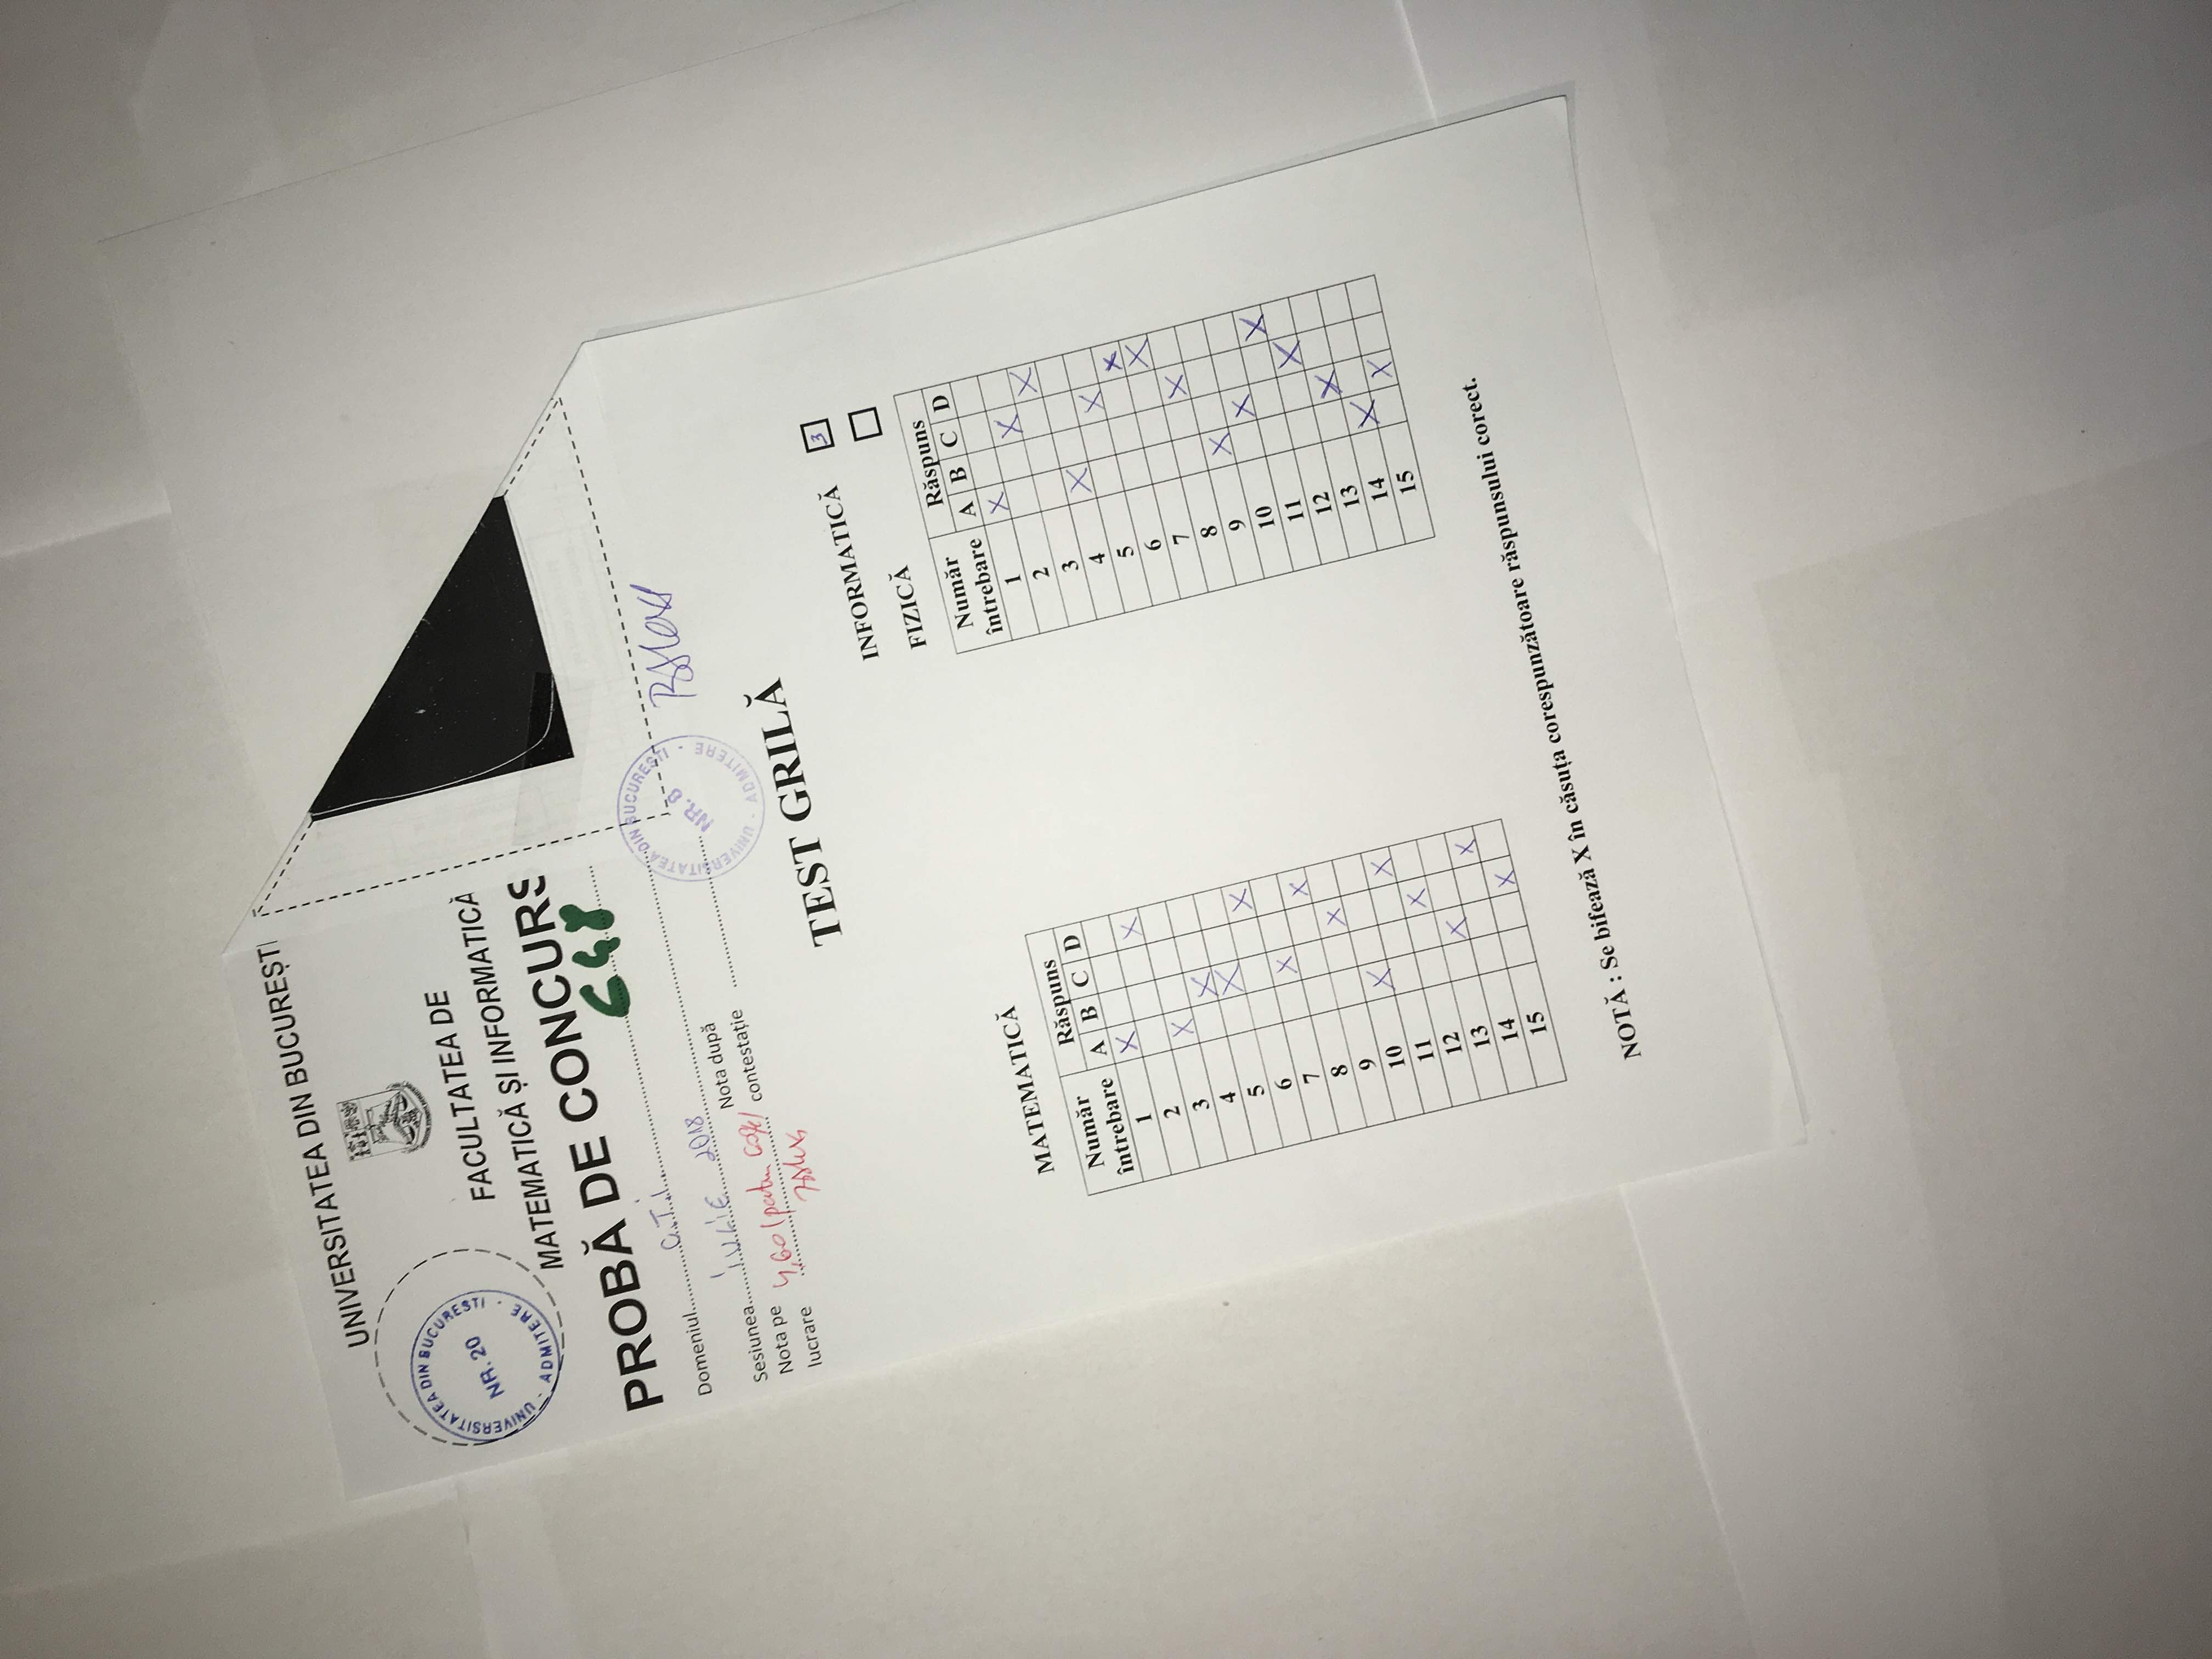 UNIVERSITATEA DIN BUCUREȘTI
UNIVERSITATEA DIN BUCURESTI - ADMITERE -
NR. 20
FACULTATEA DE
MATEMATICĂ ȘI INFORMATICĂ
PROBĂ DE CONCURS
648
Domeniul C.T.I.
Sesiunea IULIE 2018
Nota pe lucrare 4,60 (patru 60%)
Nota după contestație
UNIVERSITATEA DIN BUCURESTI - ADMITERE -
NR. 8
TEST GRILĂ
INFORMATICĂ 3
FIZICĂ
MATEMATICĂ
Număr întrebare Răspuns
A B C D
1 X
2 X
3 X
4 X
5 X
6 X
7 X
8 X
9 X
10 X
11 X
12 X
13 X
14 X
15 X
Număr întrebare Răspuns
A B C D
1 X
2 X
3 X
4 X
5 X
6 X
7 X
8 X
9 X
10 X
11 X
12 X
13 X
14 X
15 X
NOTĂ : Se bifează X în căsuța corespunzătoare răspunsului corect.